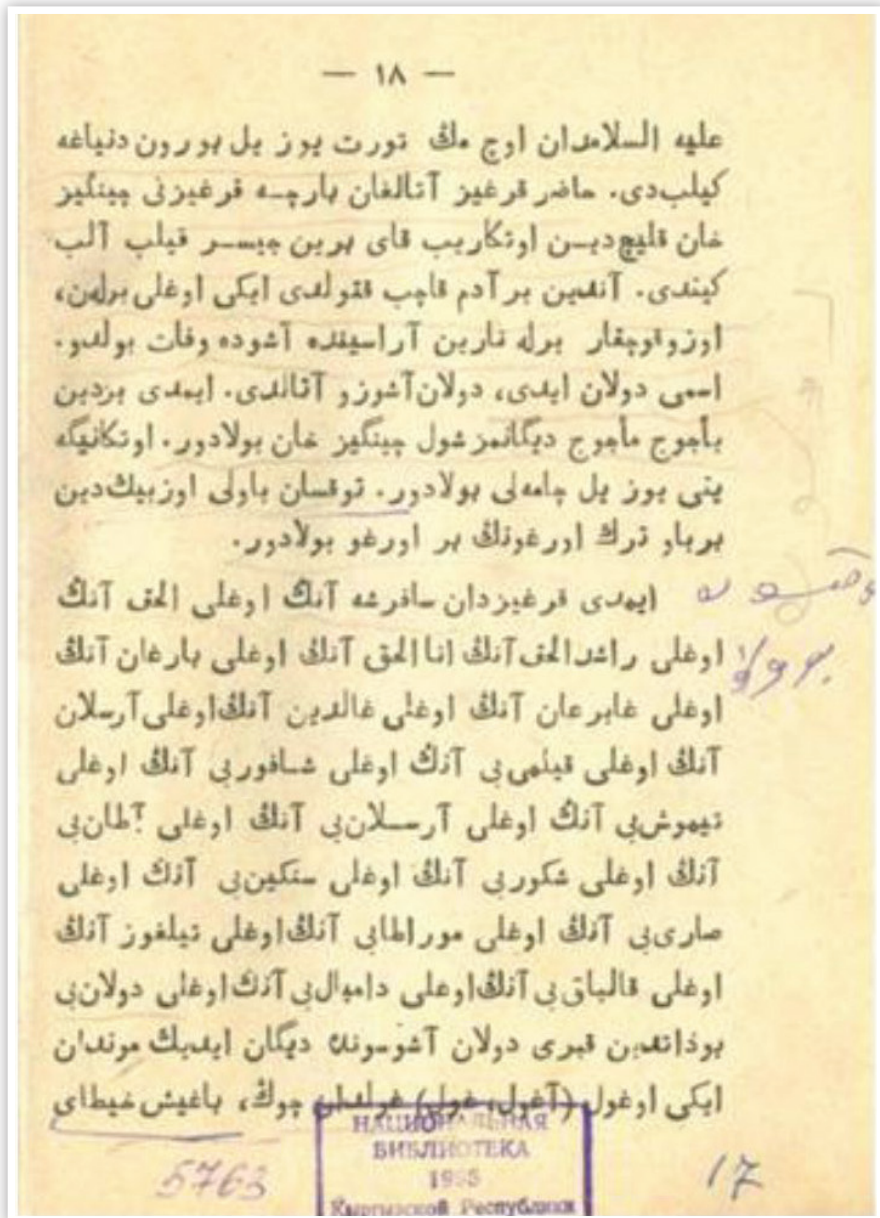 — ١٨ —
عليه السلامدان اوچ مڭ تورت يوز يل بورون دنياغه
كيلب‌دى. حاضر قرغيز آتالغان بارچه قرغيزنى چينگيز
خان قليچ‌ديـن اوتكاريب قاى برين جيسـر قيلب آلب
كيتدى. آندين بر آدم قاچب قتولدى ايكى اوغلى برلن،
اوزوقوچقار برله نارين آراسينده آشوده وفات بولدو.
اسمى دولان ايدى، دولان آشوزو آتالدى. ايمدى بزدين
يأجوج مأجوج ديگانمز شول چينگيز خان بولادور. اوتكانيگه
يتى يوز يل چامه‌لى بولادور. توقسان باولى اوزبيك‌دين
برباو ترك اورغونڭ بر اورغو بولادور.
ايمدى قرغيزدان سافرشه آنڭ اوغلى الحق آنڭ
اوغلى راشد الحق آنڭ انا الحق آنڭ اوغلى بارغان آنڭ
اوغلى غابرعان آنڭ اوغلى غالدين آنڭ اوغلى آرسلان
آنڭ اوغلى قيلمى‌بى آنڭ اوغلى شافوربى آنڭ اوغلى
تيموش‌بى آنڭ اوغلى آرسـلان‌بى آنڭ اوغلى آطان‌بى
آنڭ اوغلى شكوربى آنڭ اوغلى سنكين‌بى آنڭ اوغلى
صارى‌بى آنڭ اوغلى موراطابى آنڭ اوغلى تيلغوز آنڭ
اوغلى قالباق‌بى آنڭ اوعلى داميال‌بى آنڭ اوغلى دولان‌بى
بوذاتدين قبرى دولان آشوسونده ديگان ايديك موندان
ايكى اوغول (آغول، غول) چوڭ، باغيش خيطاى
НАЦИОНАЛЬНАЯ
БИБЛИОТЕКА
1995
Кыргызской Республики
5763
17